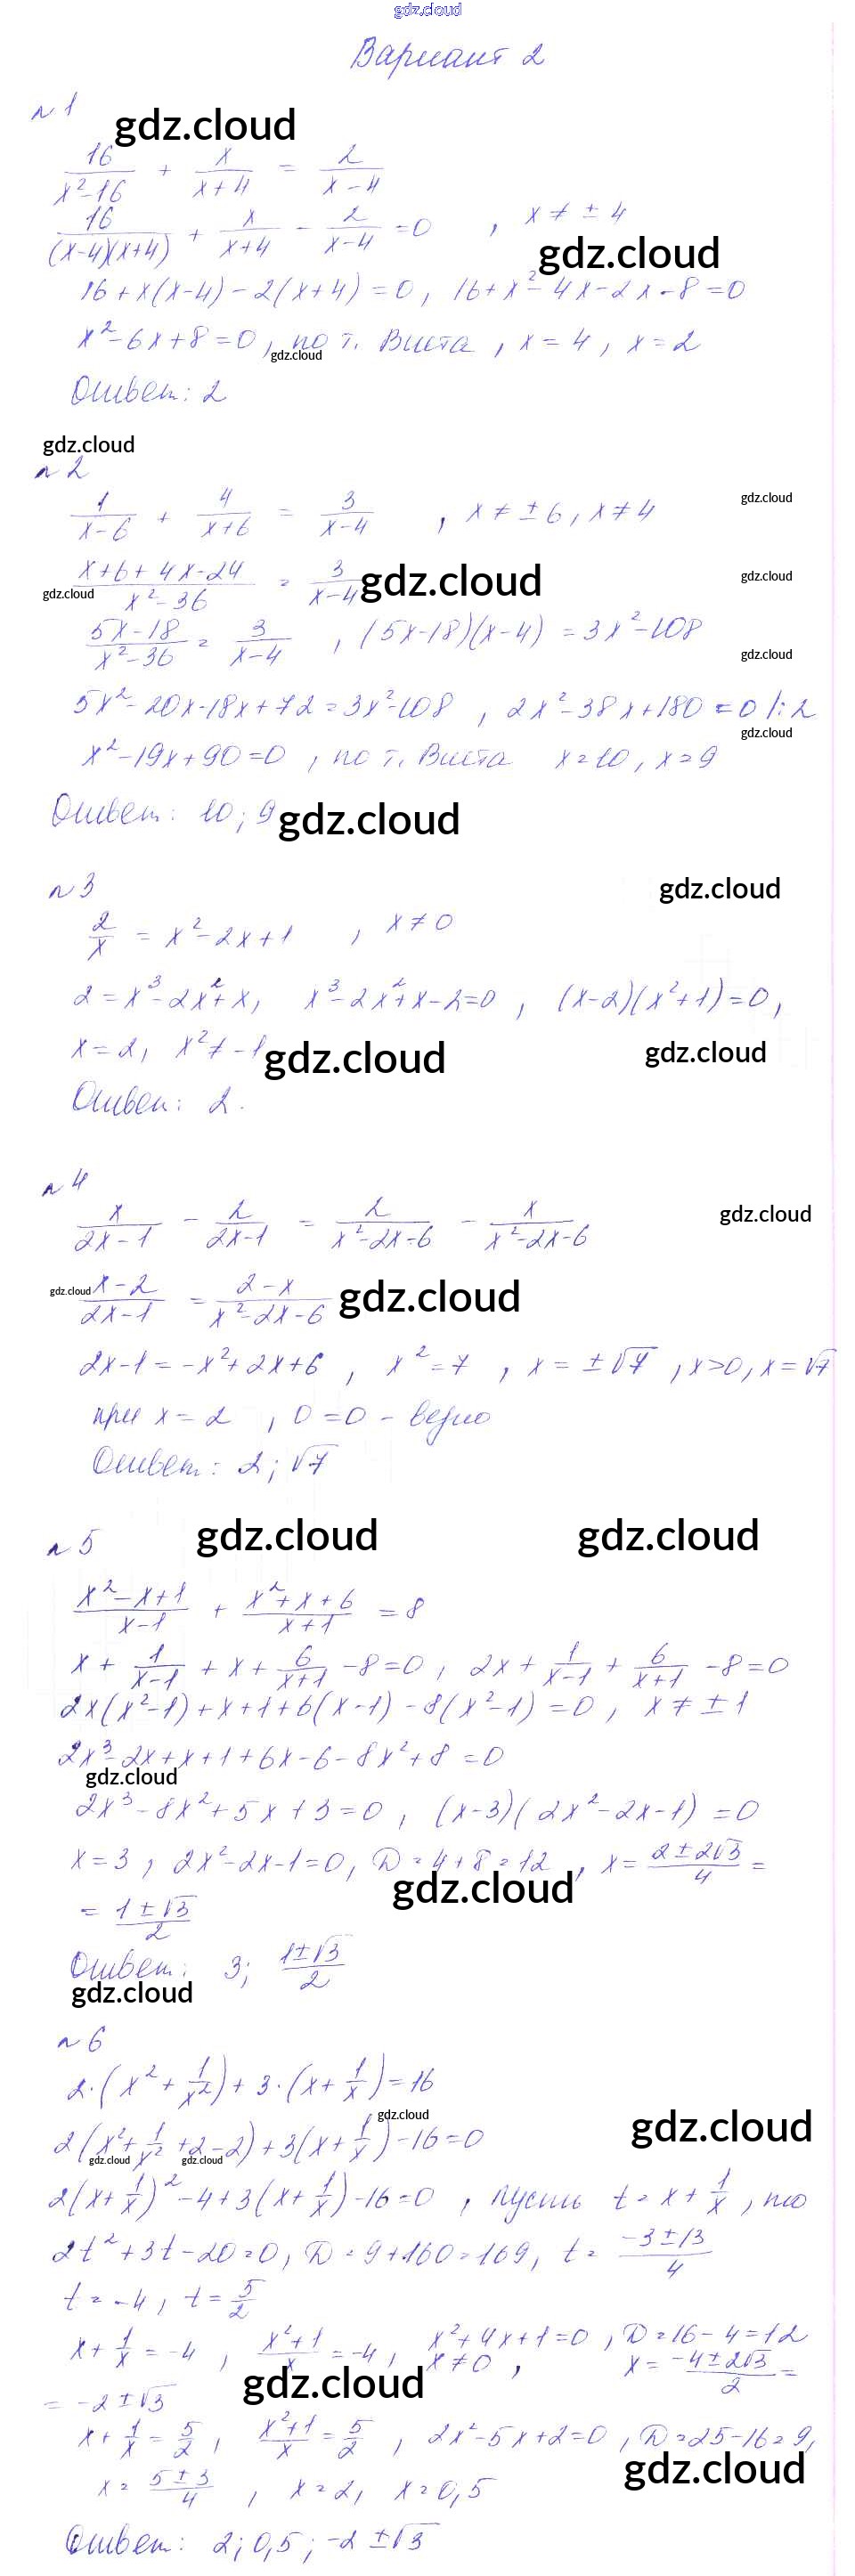 gdz.cloud
Вариант 2
n 1
gdz.cloud
16/(x²-16) + x/(x+4) = 2/(x-4)
16/((x-4)(x+4)) + x/(x+4) - 2/(x-4) = 0 , x ≠ ± 4
gdz.cloud
16+x(x-4)-2(x+4)=0, 16+x²-4x-2x-8=0
x²-6x+8=0, по т. Виета, x=4, x=2
gdz.cloud
Ответ: 2
gdz.cloud
n 2
1/(x-6) + 4/(x+6) = 3/(x-4) , x ≠ ±6, x ≠ 4
gdz.cloud
(x+6+4x-24)/(x²-36) = 3/(x-4)
gdz.cloud gdz.cloud gdz.cloud
(5x-18)/(x²-36) = 3/(x-4) , (5x-18)(x-4) = 3x²-108
gdz.cloud
5x²-20x-18x+72=3x²-108 , 2x²-38x+180=0 /:2
gdz.cloud
x²-19x+90=0 , по т. Виета x=10, x=9
Ответ: 10; 9
gdz.cloud
n 3
gdz.cloud
2/x = x²-2x+1 , x ≠ 0
2=x³-2x²+x, x³-2x²+x-2=0 , (x-2)(x²+1)=0,
x=2, x²≠-1
gdz.cloud gdz.cloud
Ответ: 2.
n 4
x/(2x-1) - 2/(2x-1) = 2/(x²-2x-6) - x/(x²-2x-6)
gdz.cloud
gdz.cloud
(x-2)/(2x-1) = (2-x)/(x²-2x-6)
gdz.cloud
2x-1=-x²+2x+6 , x²=7 , x=±√7 , x>0, x=√7
при x=2 , 0=0 - верно
Ответ: 2; √7
n 5
gdz.cloud gdz.cloud
(x²-x+1)/(x-1) + (x²+x+6)/(x+1) = 8
x + 1/(x-1) + x + 6/(x+1) - 8=0, 2x + 1/(x-1) + 6/(x+1) - 8=0
2x(x²-1)+x+1+6(x-1)-8(x²-1)=0, x ≠ ±1
2x³-2x+x+1+6x-6-8x²+8=0
gdz.cloud
2x³-8x²+5x+3=0, (x-3)(2x²-2x-1)=0
x=3, 2x²-2x-1=0, D=4+8=12 , x= (2±2√3)/4 =
gdz.cloud
= (1±√3)/2
Ответ: 3; (1±√3)/2
gdz.cloud
n 6
2·(x² + 1/x²) + 3·(x + 1/x) = 16
gdz.cloud
gdz.cloud
2(x² + 1/x² + 2-2) + 3(x + 1/x) - 16=0
gdz.cloud gdz.cloud
2(x + 1/x)² - 4 + 3(x + 1/x) - 16=0 , пусть t = x + 1/x , то
2t²+3t-20=0, D=9+160=169, t= (-3±13)/4
t=-4, t= 5/2
x + 1/x = -4 , (x²+1)/x = -4, x²+4x+1=0 , D=16-4=12
x≠0 , x= (-4±2√3)/2 =
gdz.cloud
= -2±√3
x + 1/x = 5/2 , (x²+1)/x = 5/2 , 2x²-5x+2=0 , D=25-16=9,
gdz.cloud
x= (5±3)/4 , x=2, x=0,5
Ответ: 2; 0,5; -2±√3